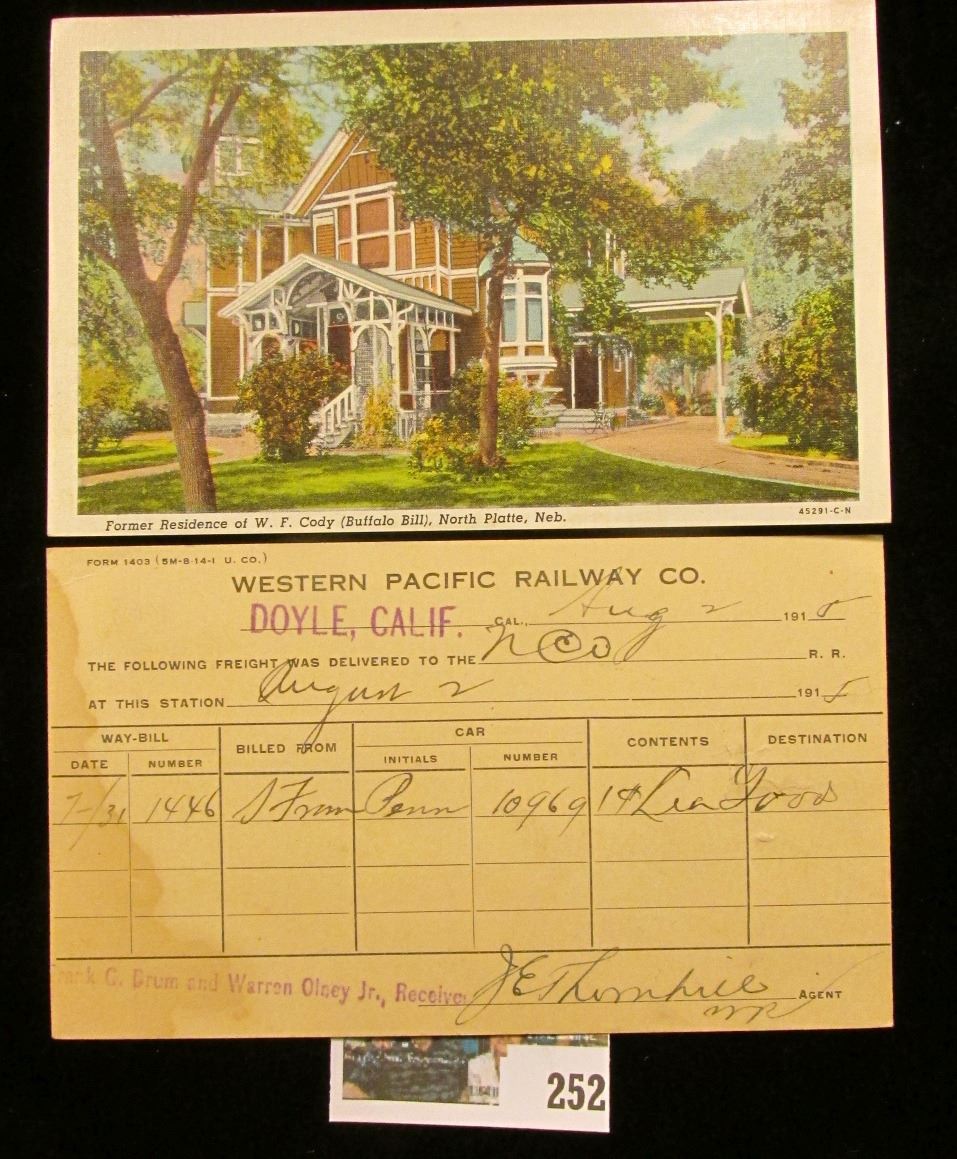 Former Residence of W. F. Cody (Buffalo Bill), North Platte, Neb.
45291-C-N
FORM 1403 (5M-8-14-1 U. CO.)
WESTERN PACIFIC RAILWAY CO.
DOYLE, CALIF. CAL., Aug 2 1915
THE FOLLOWING FREIGHT WAS DELIVERED TO THE N C O R. R.
AT THIS STATION August 2 1915
WAY-BILL BILLED FROM CAR CONTENTS DESTINATION
DATE NUMBER INITIALS NUMBER
7/31 1446 S Fran Penn 10969
Frank G. Drum and Warren Olney Jr., Receive
J E Thornhill AGENT
252